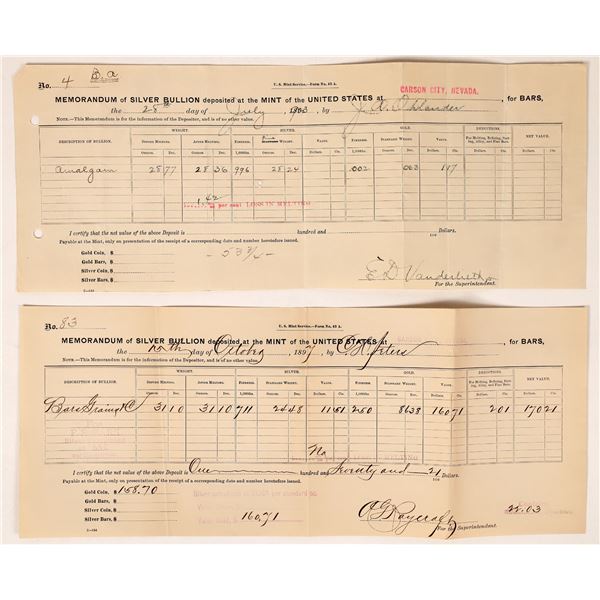 No. 4 B. a
U. S. Mint Service.—Form No. 63 A.
CARSON CITY, NEVADA.
MEMORANDUM of SILVER BULLION deposited at the MINT of the UNITED STATES at , for BARS,
the 28th day of July , 1903, by J. A. Ohlander
NOTE.—This Memorandum is for the information of the Depositor, and is of no other value.
DESCRIPTION OF BULLION. WEIGHT. SILVER. GOLD. DEDUCTIONS. NET VALUE.
BEFORE MELTING. AFTER MELTING. FINENESS. STANDARD WEIGHT. VALUE. FINENESS. STANDARD WEIGHT. VALUE. For Melting, Refining, Parting, Alloy, and Fine Bars.
Ounces. Dec. Ounces. Dec. 1,000ths. Ounces. Dec. Dollars. Cts. 1,000ths. Ounces. Dec. Dollars. Cts. Dollars. Cts. Dollars. Cts.
Amalgam 28 77 28 36 996 28 24 .002 .063 1 17
1.42 per cent LOSS IN MELTING
I certify that the net value of the above Deposit is hundred and /100 Dollars.
Payable at the Mint, only on presentation of the receipt of a corresponding date and number heretofore issued.
Gold Coin, $
- 53 3/4 -
Gold Bars, $
Silver Coin, $
Silver Bars, $
E D Vanderlieth
For the Superintendent.
No. 83
U. S. Mint Service.—Form No. 63 A.
MEMORANDUM of SILVER BULLION deposited at the MINT of the UNITED STATES at , for BARS,
the day of October , 1897, by
NOTE.—This Memorandum is for the information of the Depositor, and is of no other value.
DESCRIPTION OF BULLION. WEIGHT. SILVER. GOLD. DEDUCTIONS. NET VALUE.
BEFORE MELTING. AFTER MELTING. FINENESS. STANDARD WEIGHT. VALUE. FINENESS. STANDARD WEIGHT. VALUE. For Melting, Refining, Parting, Alloy, and Fine Bars.
Ounces. Dec. Ounces. Dec. 1,000ths. Ounces. Dec. Dollars. Cts. 1,000ths. Ounces. Dec. Dollars. Cts. Dollars. Cts. Dollars. Cts.
Bars Grains &C 31 10 31 10 711 24 48 11 51 250 8 638 160 71 2 01 170 21
No MELTING
I certify that the net value of the above Deposit is One hundred and Seventy and 21/100 Dollars.
Payable at the Mint, only on presentation of the receipt of a corresponding date and number heretofore issued.
Gold Coin, $ 158.70
Gold Bars, $
Silver Coin, $
Silver Bars, $
160.71
For the Superintendent.